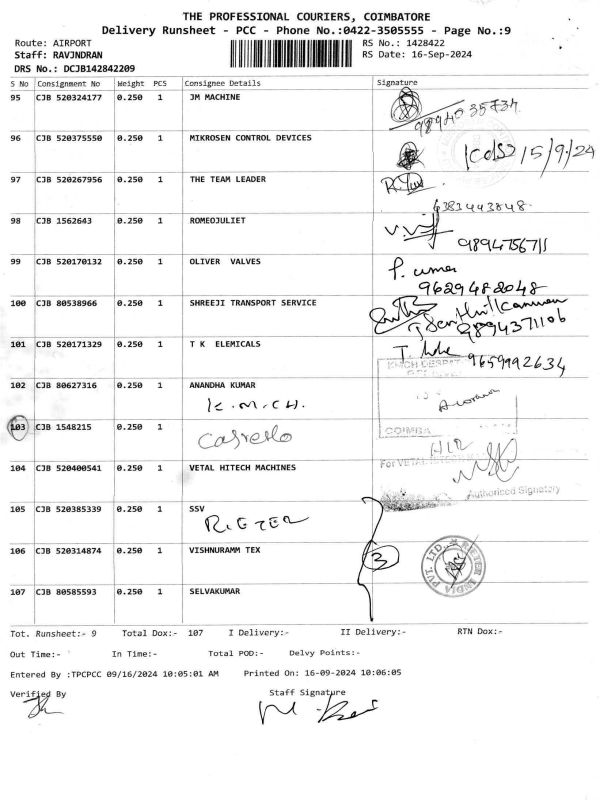 THE PROFESSIONAL COURIERS, COIMBATORE
Delivery Runsheet - PCC - Phone No.:0422-3505555 - Page No.:9
Route: AIRPORT RS No.: 1428422
Staff: RAVJNDRAN RS Date: 16-Sep-2024
DRS No.: DCJB142842209
S No Consignment No Weight PCS Consignee Details Signature
95 CJB 520324177 0.250 1 JM MACHINE
96 CJB 520375550 0.250 1 MIKROSEN CONTROL DEVICES
97 CJB 520267956 0.250 1 THE TEAM LEADER
6383443848
98 CJB 1562643 0.250 1 ROMEOJULIET
9894756711
99 CJB 520170132 0.250 1 OLIVER VALVES
9629482048
100 CJB 80538966 0.250 1 SHREEJI TRANSPORT SERVICE
9894371106
101 CJB 520171329 0.250 1 T K ELEMICALS
9659992634
102 CJB 80627316 0.250 1 ANANDHA KUMAR
K.M.CH.
103 CJB 1548215 0.250 1
COIMBA
104 CJB 520400541 0.250 1 VETAL HITECH MACHINES
For VETAL HITECH
Authorised Signatory
105 CJB 520385339 0.250 1 SSV
RIETER
106 CJB 520314874 0.250 1 VISHNURAMM TEX 3
RIETER INDIA PVT. LTD.
107 CJB 80585593 0.250 1 SELVAKUMAR
Tot. Runsheet:- 9 Total Dox:- 107 I Delivery:- II Delivery:- RTN Dox:-
Out Time:- In Time:- Total POD:- Delvy Points:-
Entered By :TPCPCC 09/16/2024 10:05:01 AM Printed On: 16-09-2024 10:06:05
Verified By Staff Signature